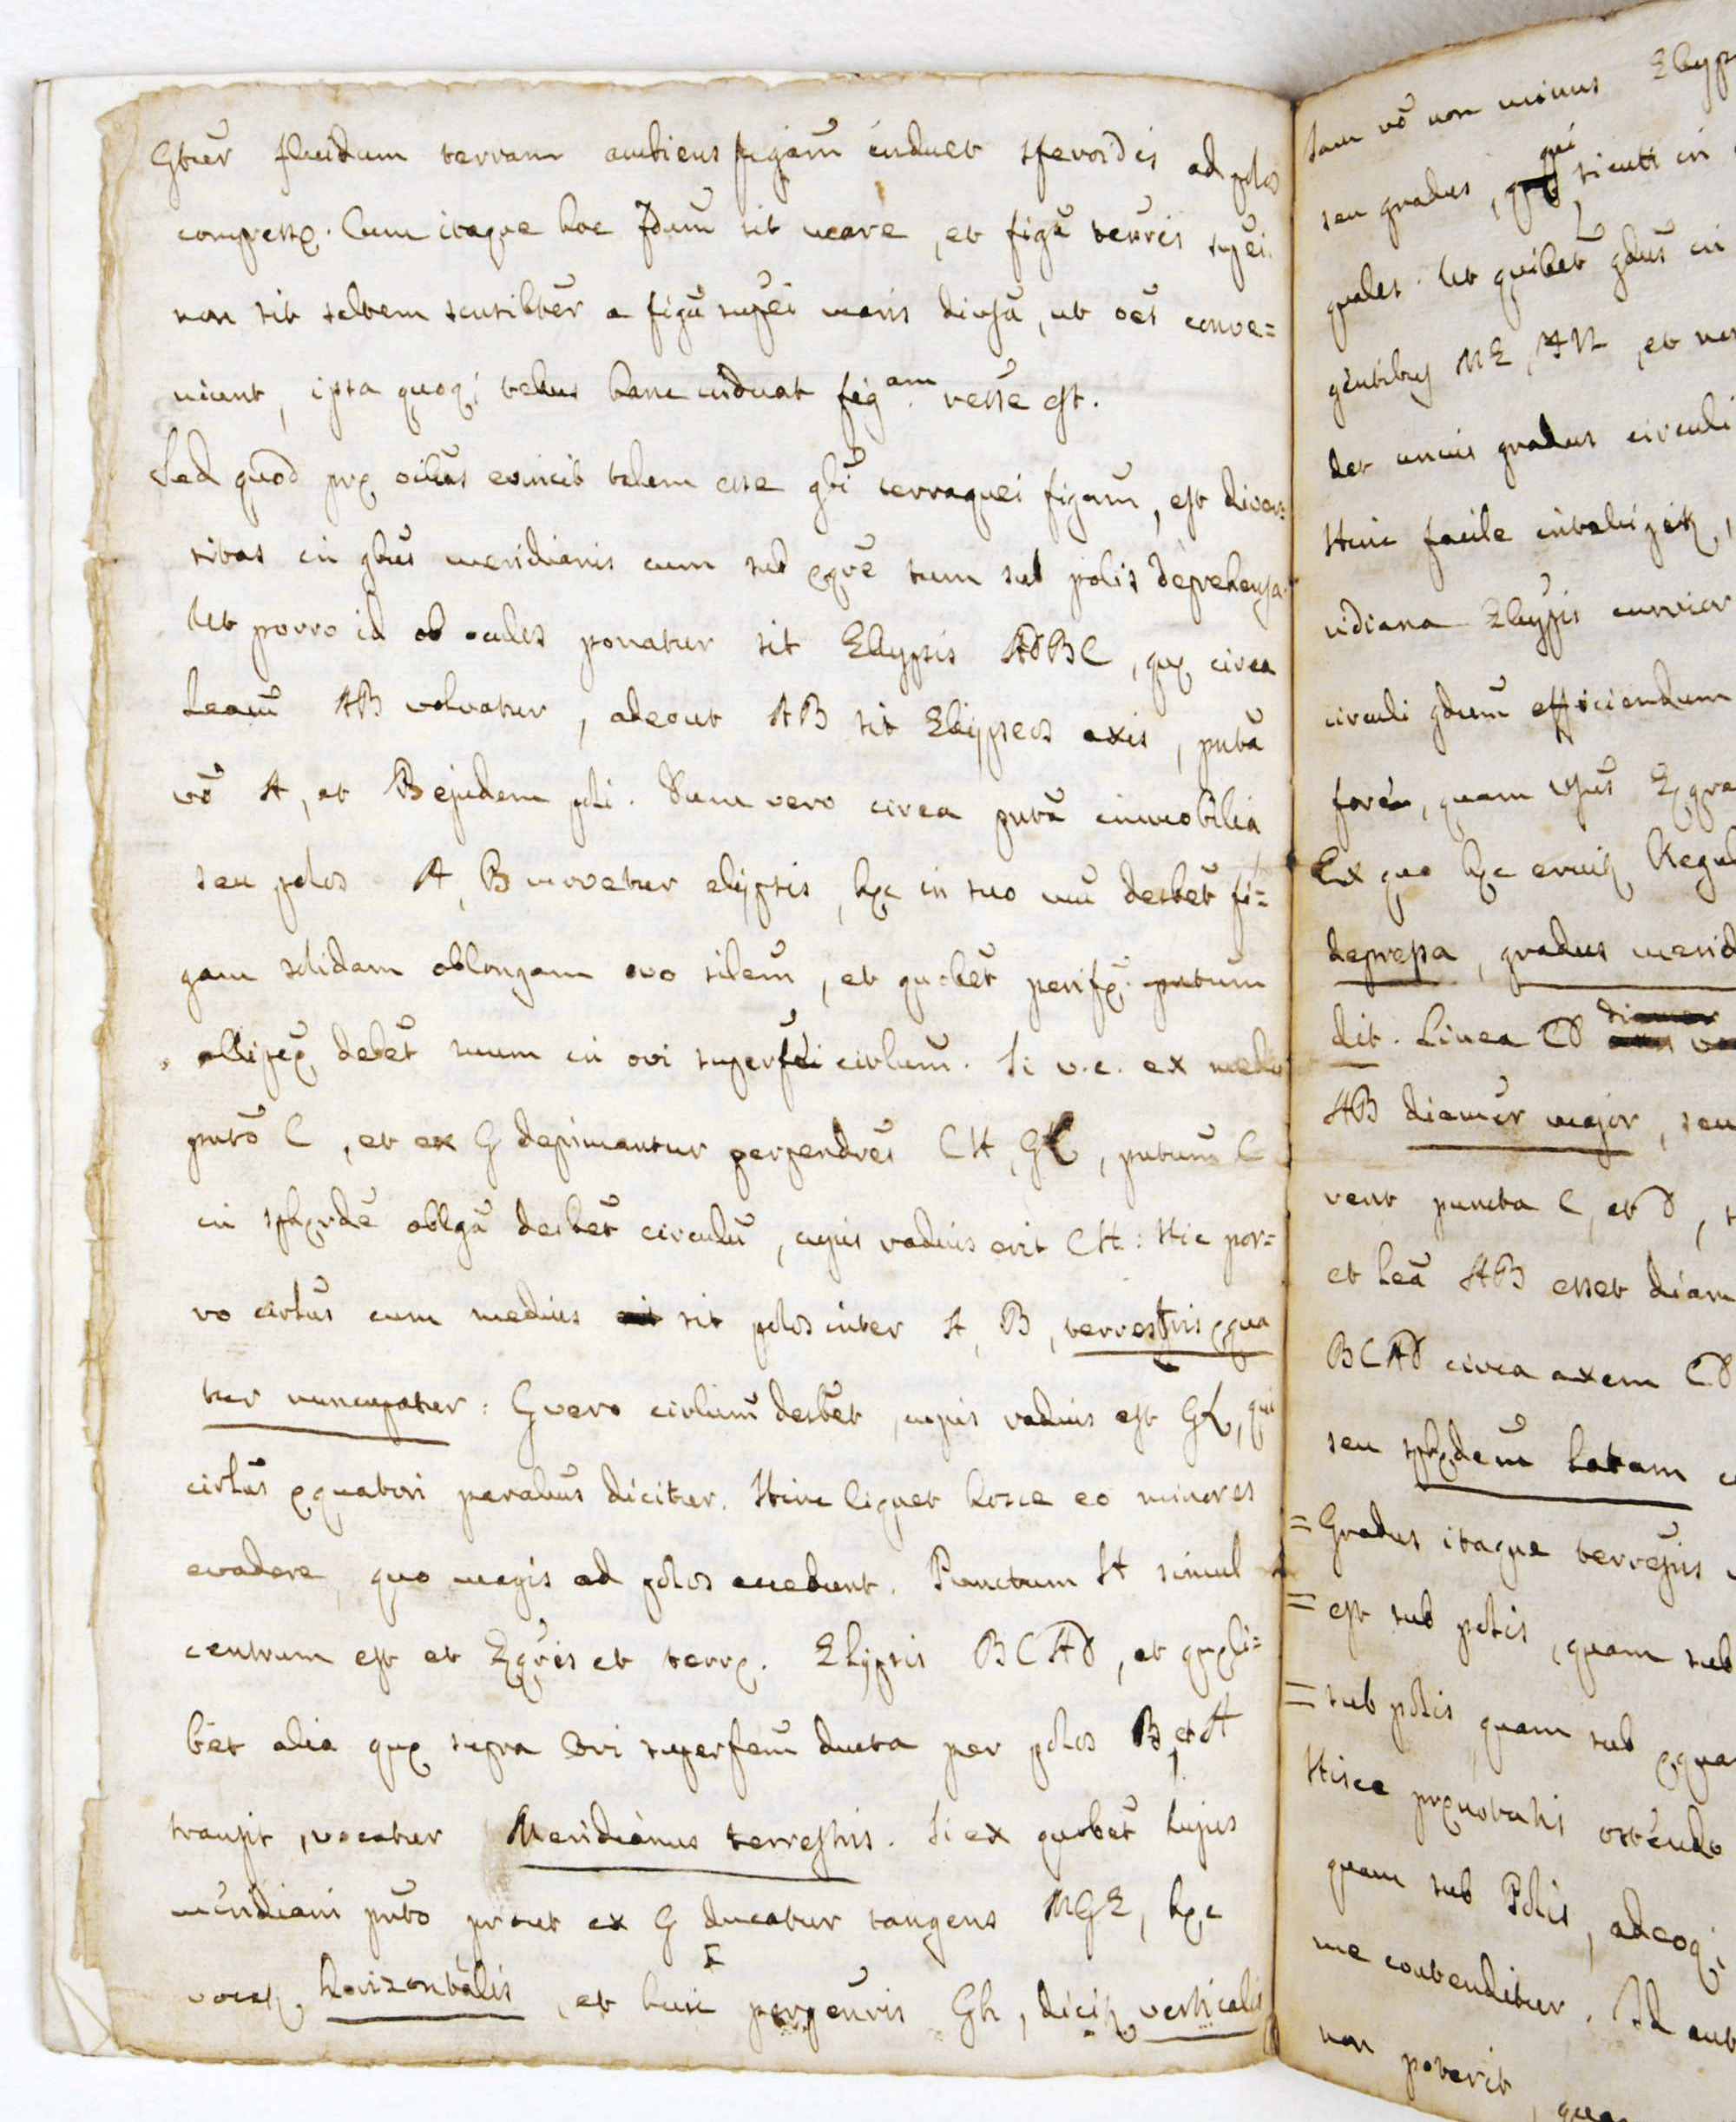 Gtur fluidum terram ambiens figam induet sferoidis ad polos
compressæ. Cum itaque hoc fdum sit mare, et figa terris supei
non sit saltem sensibter a figa supei maris diusa, ut oes conve=
niunt, ipsa quoq; tellus hanc induat figam. nesse est.
Sed quod præ oibus evincit talem esse gbi terraquei figam, est diver=
sitas in gbus meridianis cum sub æqre tum sub polis deprehensa.
Ut porro id ob oculos ponatur sit Elypsis ADBC, quæ circa
Leam AB volvatur, adeout AB sit Elypseos axis, puta
vo A, et B ejusdem poli. Dum vero circa puta immobilia
seu polos A, B movetur elypsis, hæc in suo mu desbet fi=
gam solidam oblongam ovo silem, et quodbet perifæ. putum
ellipseæ desbet suum in ovi superfei cirlum. Si v.c. ex medio
puto C, et ex G deprimantur perpendres CH, GL, putum C
in sphærde oblga desbet circulu, cujus radius erit CH: Hic por=
ro cirlus cum medius sit polos inter A, B, terrestris æqua
tor nuncupatur: G vero cirlum desbet, cujus radius est GL, qui
cirlus æquatori paralus dicitur. Hinc liquet hosce eo minores
evadere, quo magis ad polos accedunt. Punctum H simul
centrum est et Æqris et terræ. Elypsis BCAD, et quæli=
bet alia quæ supra Ovi superfem ducta per polos B, et A
transit, vocatur Meridianus terrestris. Si ex quobet hujus
meridiani puto prout ex G ducatur tangens MGE, hæc
vocat horizontalis, et huic perpenris Gh, dicit verticalis
Jam vo non minus Elyp
seu gradus, qui sicuti in
quales. Ut quilbet gdus in
gentibus ME, AN, et
det unius gradus circuli
Hinc facile intelligit,
ridiana Elypsis curvior
circuli gdum efficiendum
fore, quam Æqua
Ex quo hæc eruit Regul
depressa, gradus merid
dit. Linea CD
AB diamer major, seu
rent puncta C, et D,
et lea AB esset diam
BCAD circa axem CD
seu sphædem latam
= Gradus itaque terrestris
= est sub polis, quam sub
= sub polis quam sub æqua
Hisce prænotatis ostendo
quam sub Polis, adeoq;
me contenditur. Id aut
non poterit, qua